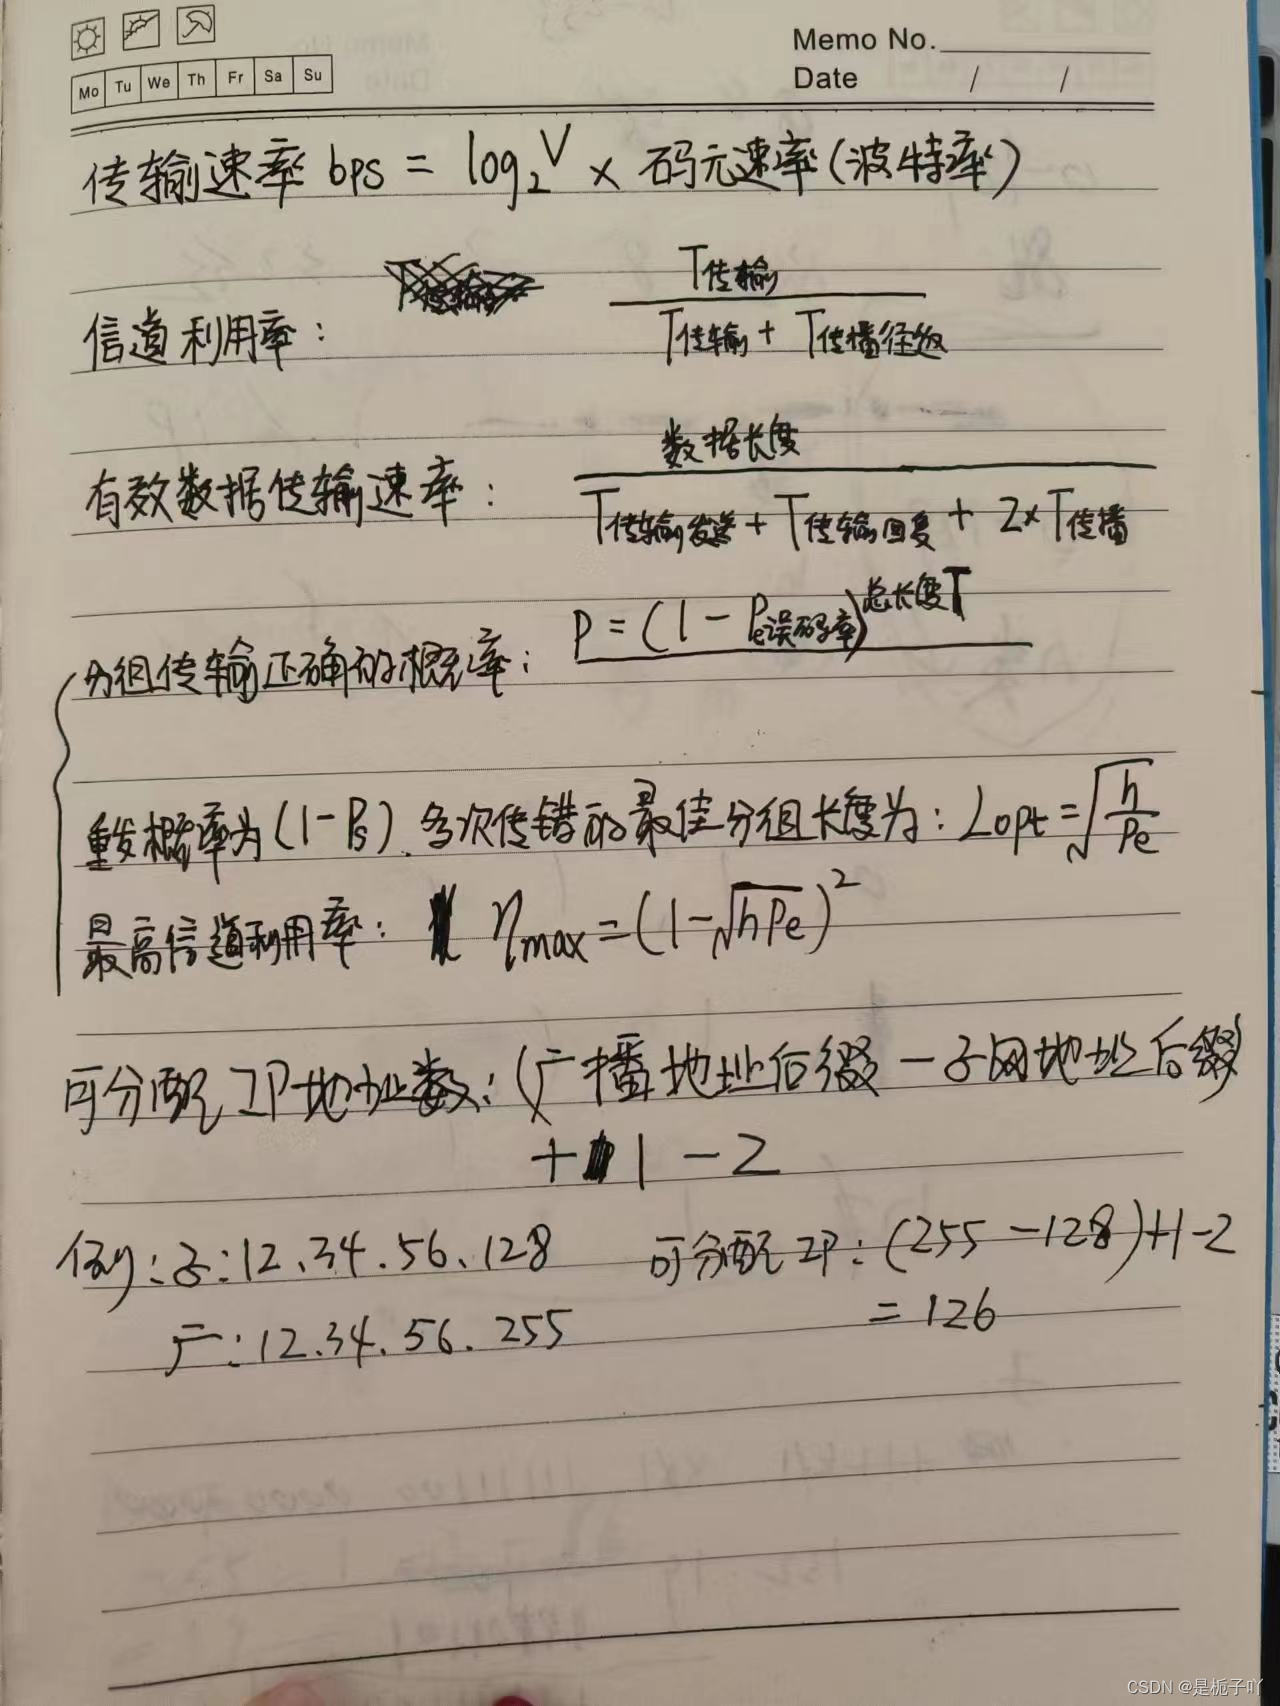 Memo No.
Mo Tu We Th Fr Sa Su
Date / /
传输速率 bps = log₂V × 码元速率(波特率)
T传输
信道利用率:
T传输 + T传播往返
数据长度
有效数据传输速率:
T传输发送 + T传输回复 + 2×T传播
P = (1 - Pe误码率)总长度T
分组传输正确的概率:
重发概率为(1-Ps). 多次传错的最佳分组长度为: Lopt = √h/Pe
最高信道利用率: ηmax = (1-√hPe)²
可分配IP地址数: (广播地址后缀 - 子网地址后缀)
+ 1 - 2
例: 子: 12.34.56.128 可分配IP: (255 - 128)+1-2
= 126
广: 12.34.56.255
CSDN @是栀子吖